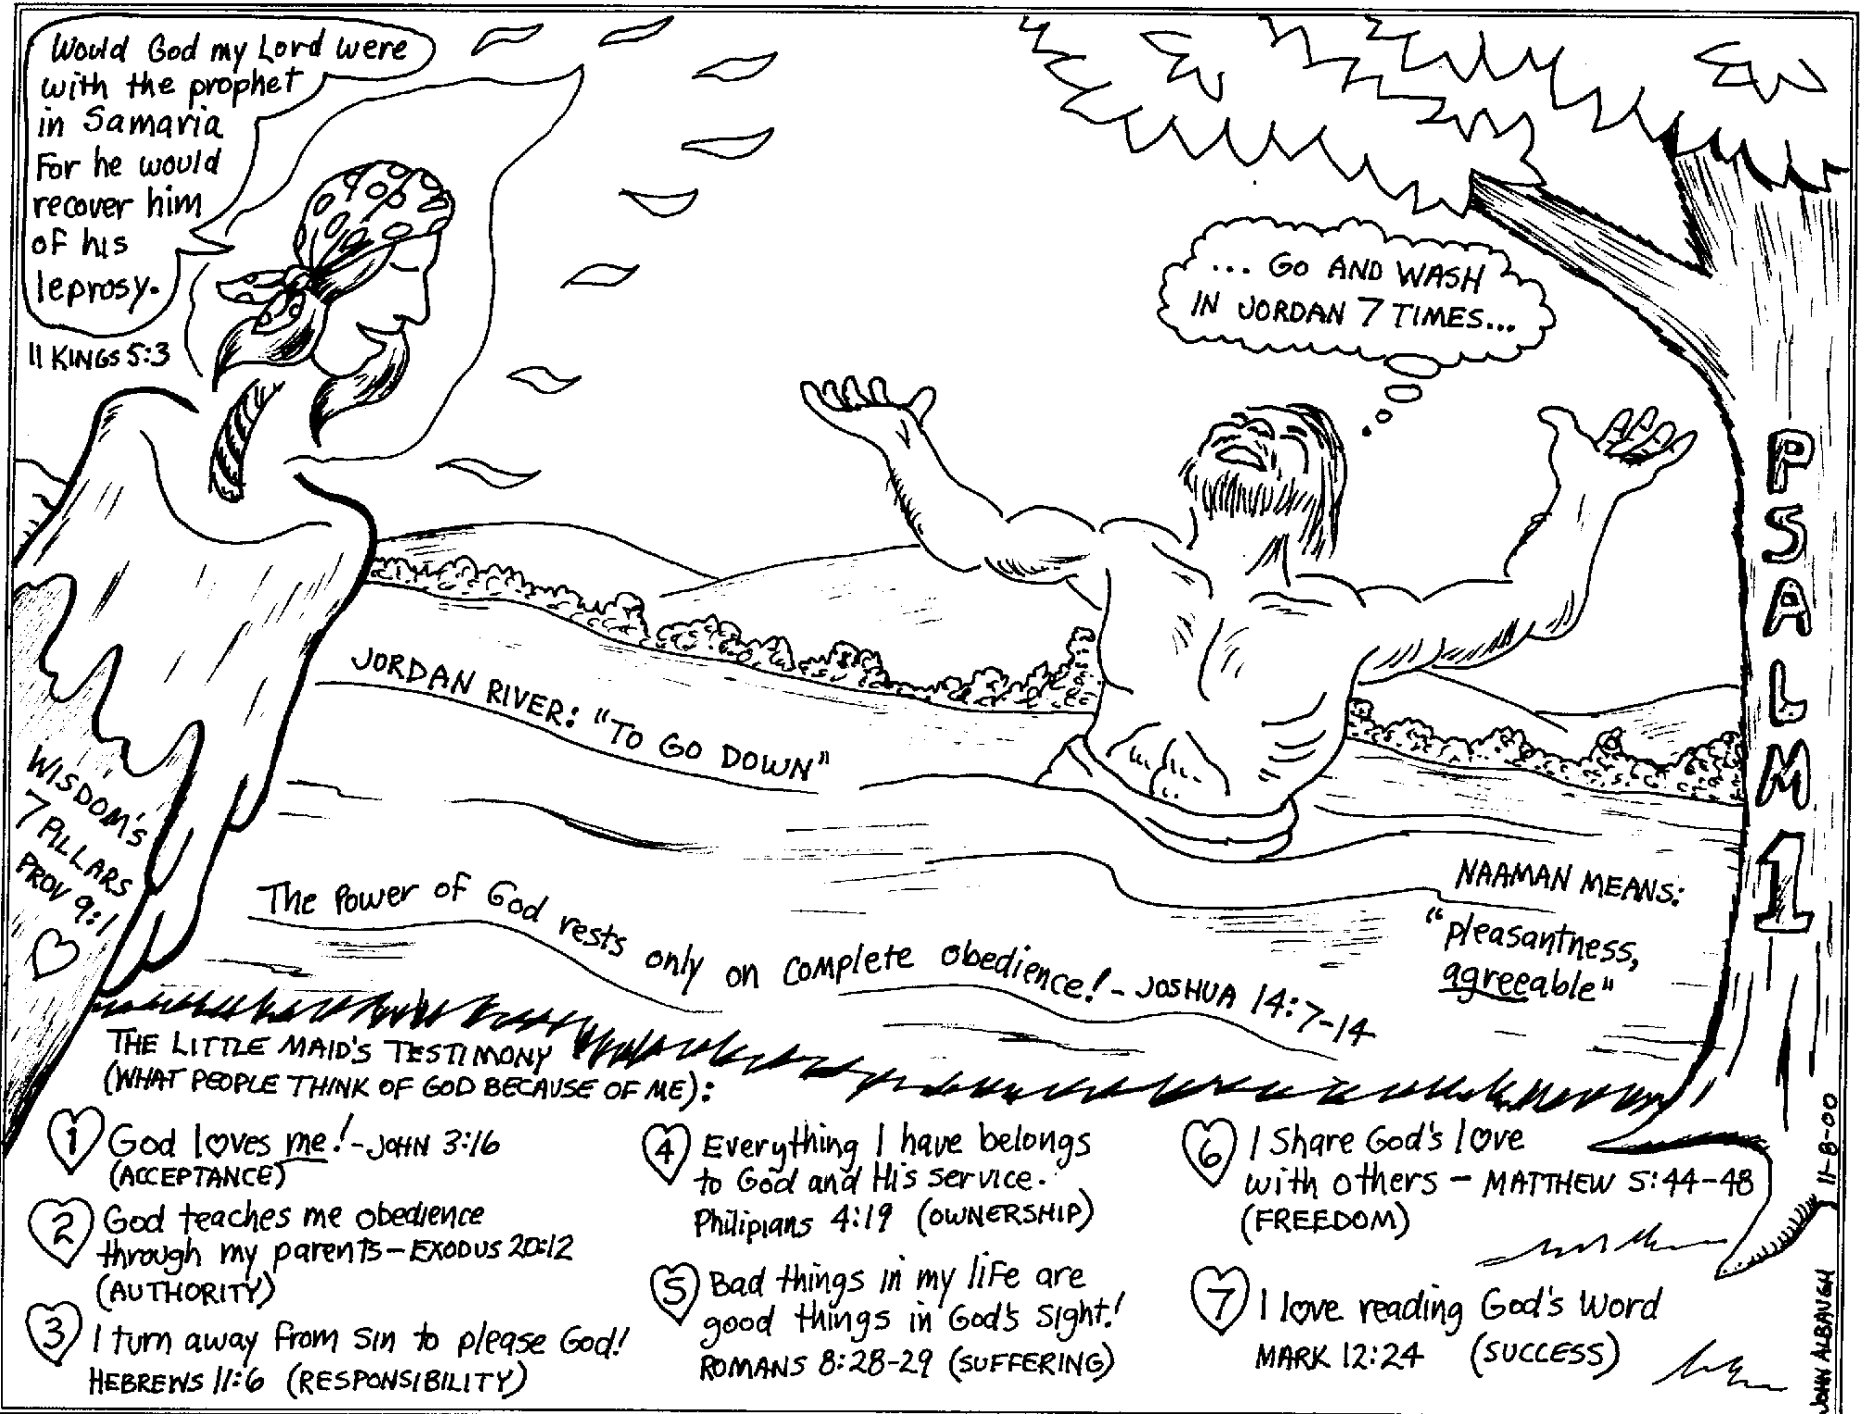 Would God my Lord were
with the prophet
in Samaria
For he would
recover him
of his
leprosy.
II KINGS 5:3
... GO AND WASH
IN JORDAN 7 TIMES...
PSALM 1
JORDAN RIVER: "TO GO DOWN"
WISDOM'S
7 PILLARS
PROV 9:1
The Power of God rests only on complete obedience! - JOSHUA 14:7-14
NAAMAN MEANS:
"pleasantness,
agreeable"
THE LITTLE MAID'S TESTIMONY
(WHAT PEOPLE THINK OF GOD BECAUSE OF ME):
1 God loves me! - JOHN 3:16
(ACCEPTANCE)
2 God teaches me obedience
through my parents - EXODUS 20:12
(AUTHORITY)
3 I turn away from sin to please God!
HEBREWS 11:6 (RESPONSIBILITY)
4 Everything I have belongs
to God and His service.
Philipians 4:19 (OWNERSHIP)
5 Bad things in my life are
good things in God's sight!
ROMANS 8:28-29 (SUFFERING)
6 I Share God's love
with others - MATTHEW 5:44-48
(FREEDOM)
7 I love reading God's Word
MARK 12:24 (SUCCESS)
JOHN ALBAUGH 11-8-00